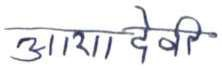 आशा देवी